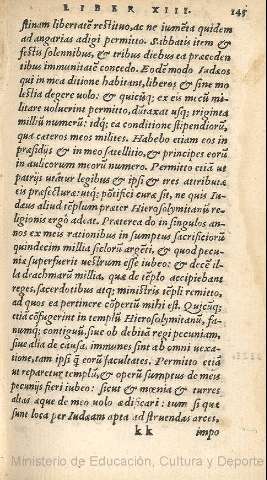 LIBER XIII. 145
stinam libertatẽ restituo, ac ne iumẽta quidem
ad angarias adigi permitto. Sabbatis item &
festis solennibus, & tribus diebus ea præceden
tibus immunitatẽ concedo. Eodẽ modo Iudæos
qui in mea ditione habitant, liberos & sine mo
lestia degere uolo: & quicũq; ex eis mecũ mi-
litare uoluerint permitto, dũtaxat usq; triginta
milliũ numerũ: idq; ea conditione stipendiorũ,
qua cæteros meos milites. Habebo etiam eos in
præsidijs & in meo satellitio, & principes eorũ
in aulicorum meorũ numero. Permitto etiã ut
patrijs utatur legibus & ipsi & tres attributæ
eis præfecturæ: utq; põtifici curæ sit, ne quis Iu-
dæus aliud tẽplum præter Hierosolymitanũ re-
ligionis ergò adeat. Præterea do in singulos an-
nos ex meis rationibus in sumptus sacrificiorũ
quindecim millia siclorũ argẽti, & quod pecu-
niæ superfuerit uestrum esse iubeo: & decẽ il-
la drachmarũ millia, quæ de tẽplo accipiebant
reges, sacerdotibus atq; ministris tẽpli remitto,
ad quos ea pertinere cõpertũ mihi est. Quicũq;
etiã cõfugerint in templũ Hierosolymitanũ, fa-
numq; contiguũ, siue ob debitã regi pecuniam,
siue alia de causa, immunes sint ab omni uexa-
tione, tam ipsi q̃ eorũ facultates. Permitto etiã
ut reparetur templũ, & operũ sumptus de meis
pecunijs fieri iubeo: sicut & mœnia & turres
altas æque de meo uolo ædificari: tum si quæ
sunt loca per Iudæam apta ad struendas arces,
kk impo
Ministerio de Educación, Cultura y Deporte